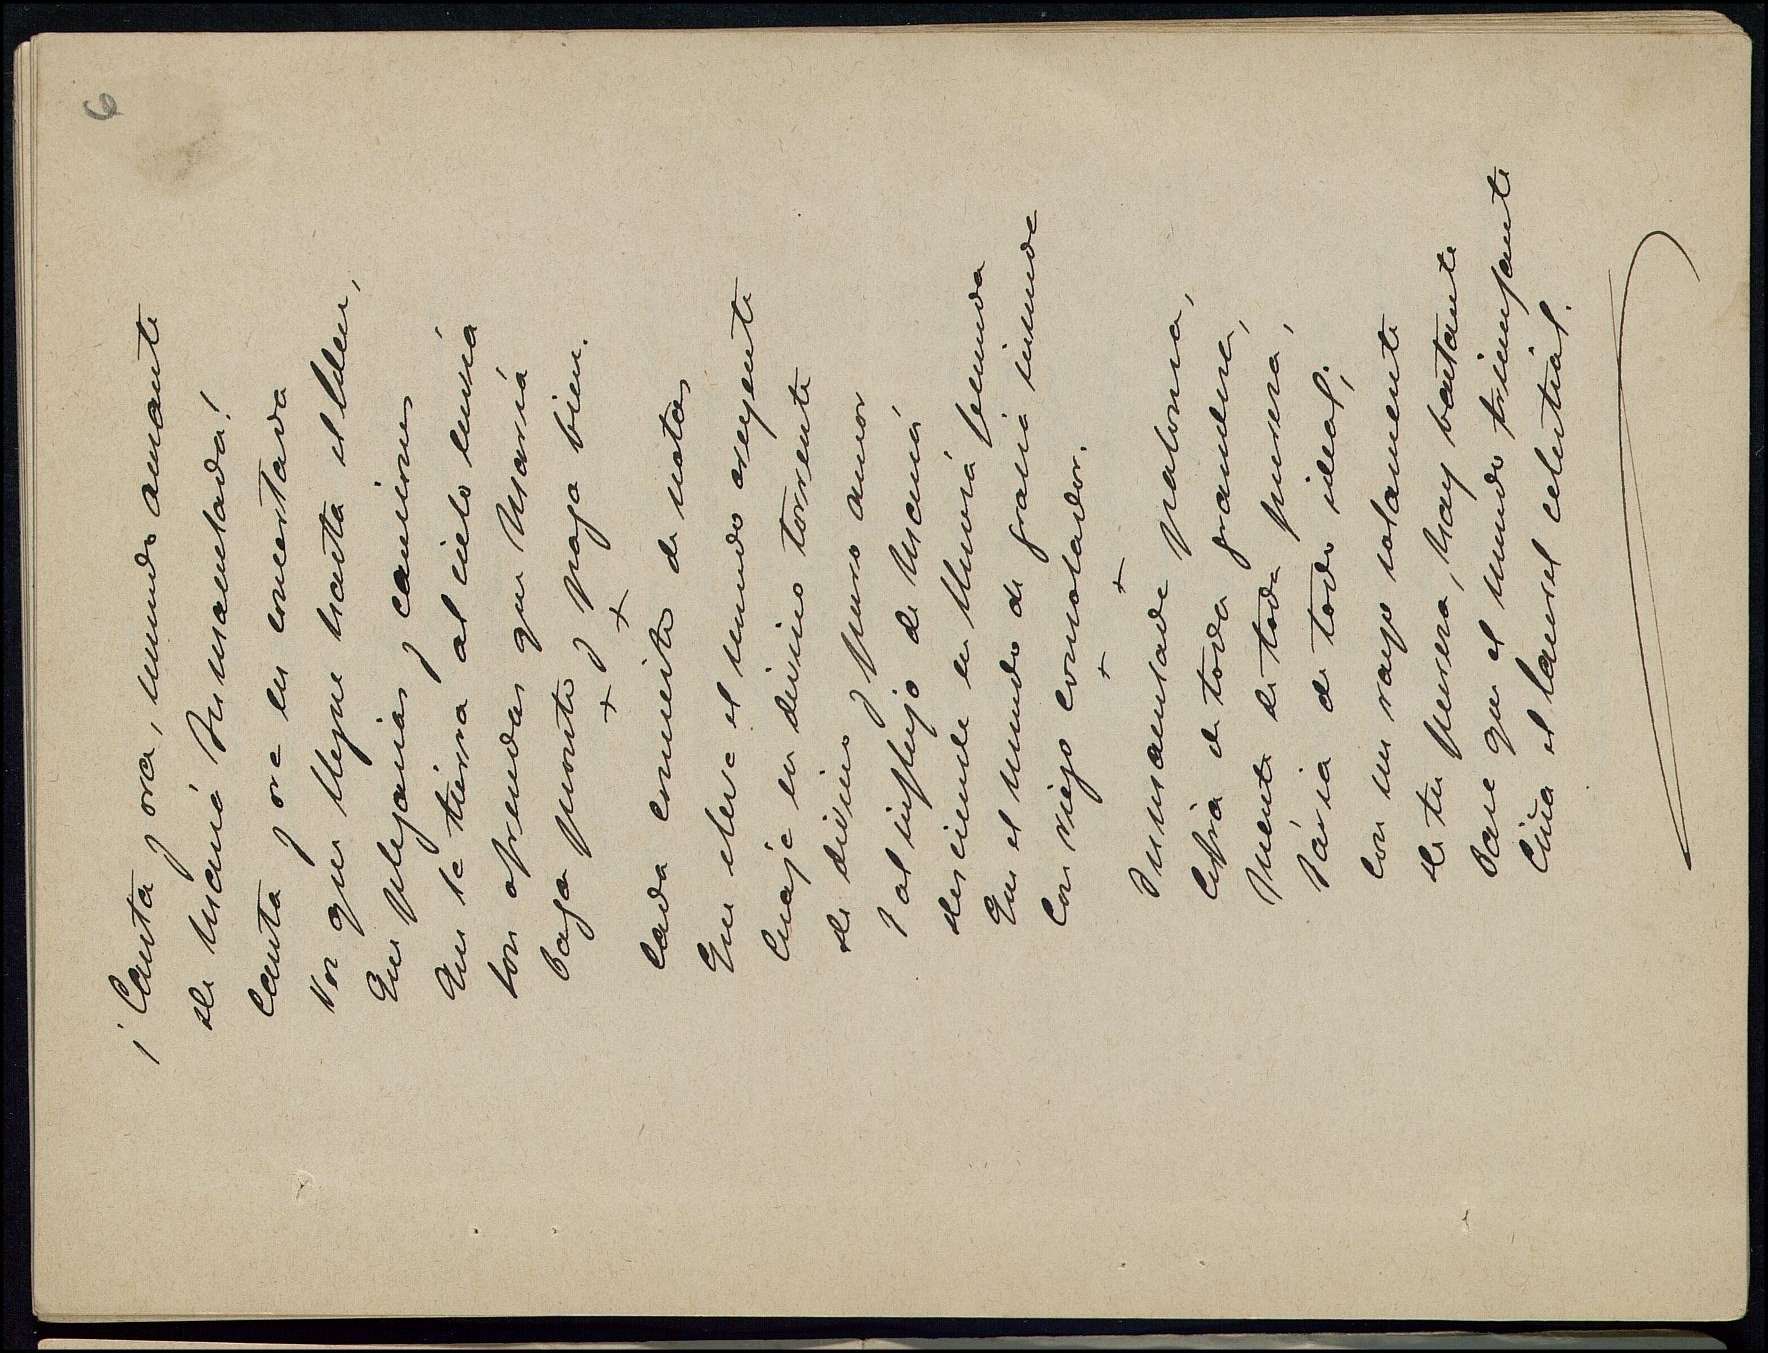 6
¡Canta y ora, mundo amante
de María Inmaculada!
Canta y ore en concertada
voz que llegue hasta el Eden,
Que plegarias y canciones
Que la tierra al cielo envia
son ofrendas que María
Paga pronto y paga bien.
+ +
Cada conciento de notas
Que eleve el mundo creyente
Cuaje en divino torrente
de divino y puro amor
Y al influjo de María
descienda en lluvia fecunda
Que el mundo de gracia inunde
Con riego consolador.
+ +
Inmaculada paloma,
Cifra de toda grandeza,
Fuente de toda pureza,
Patria de todo ideal;
Con un rayo solamente
de tu pureza, hay bastante
Para que el mundo triunfante
Ciña el laurel celestial.